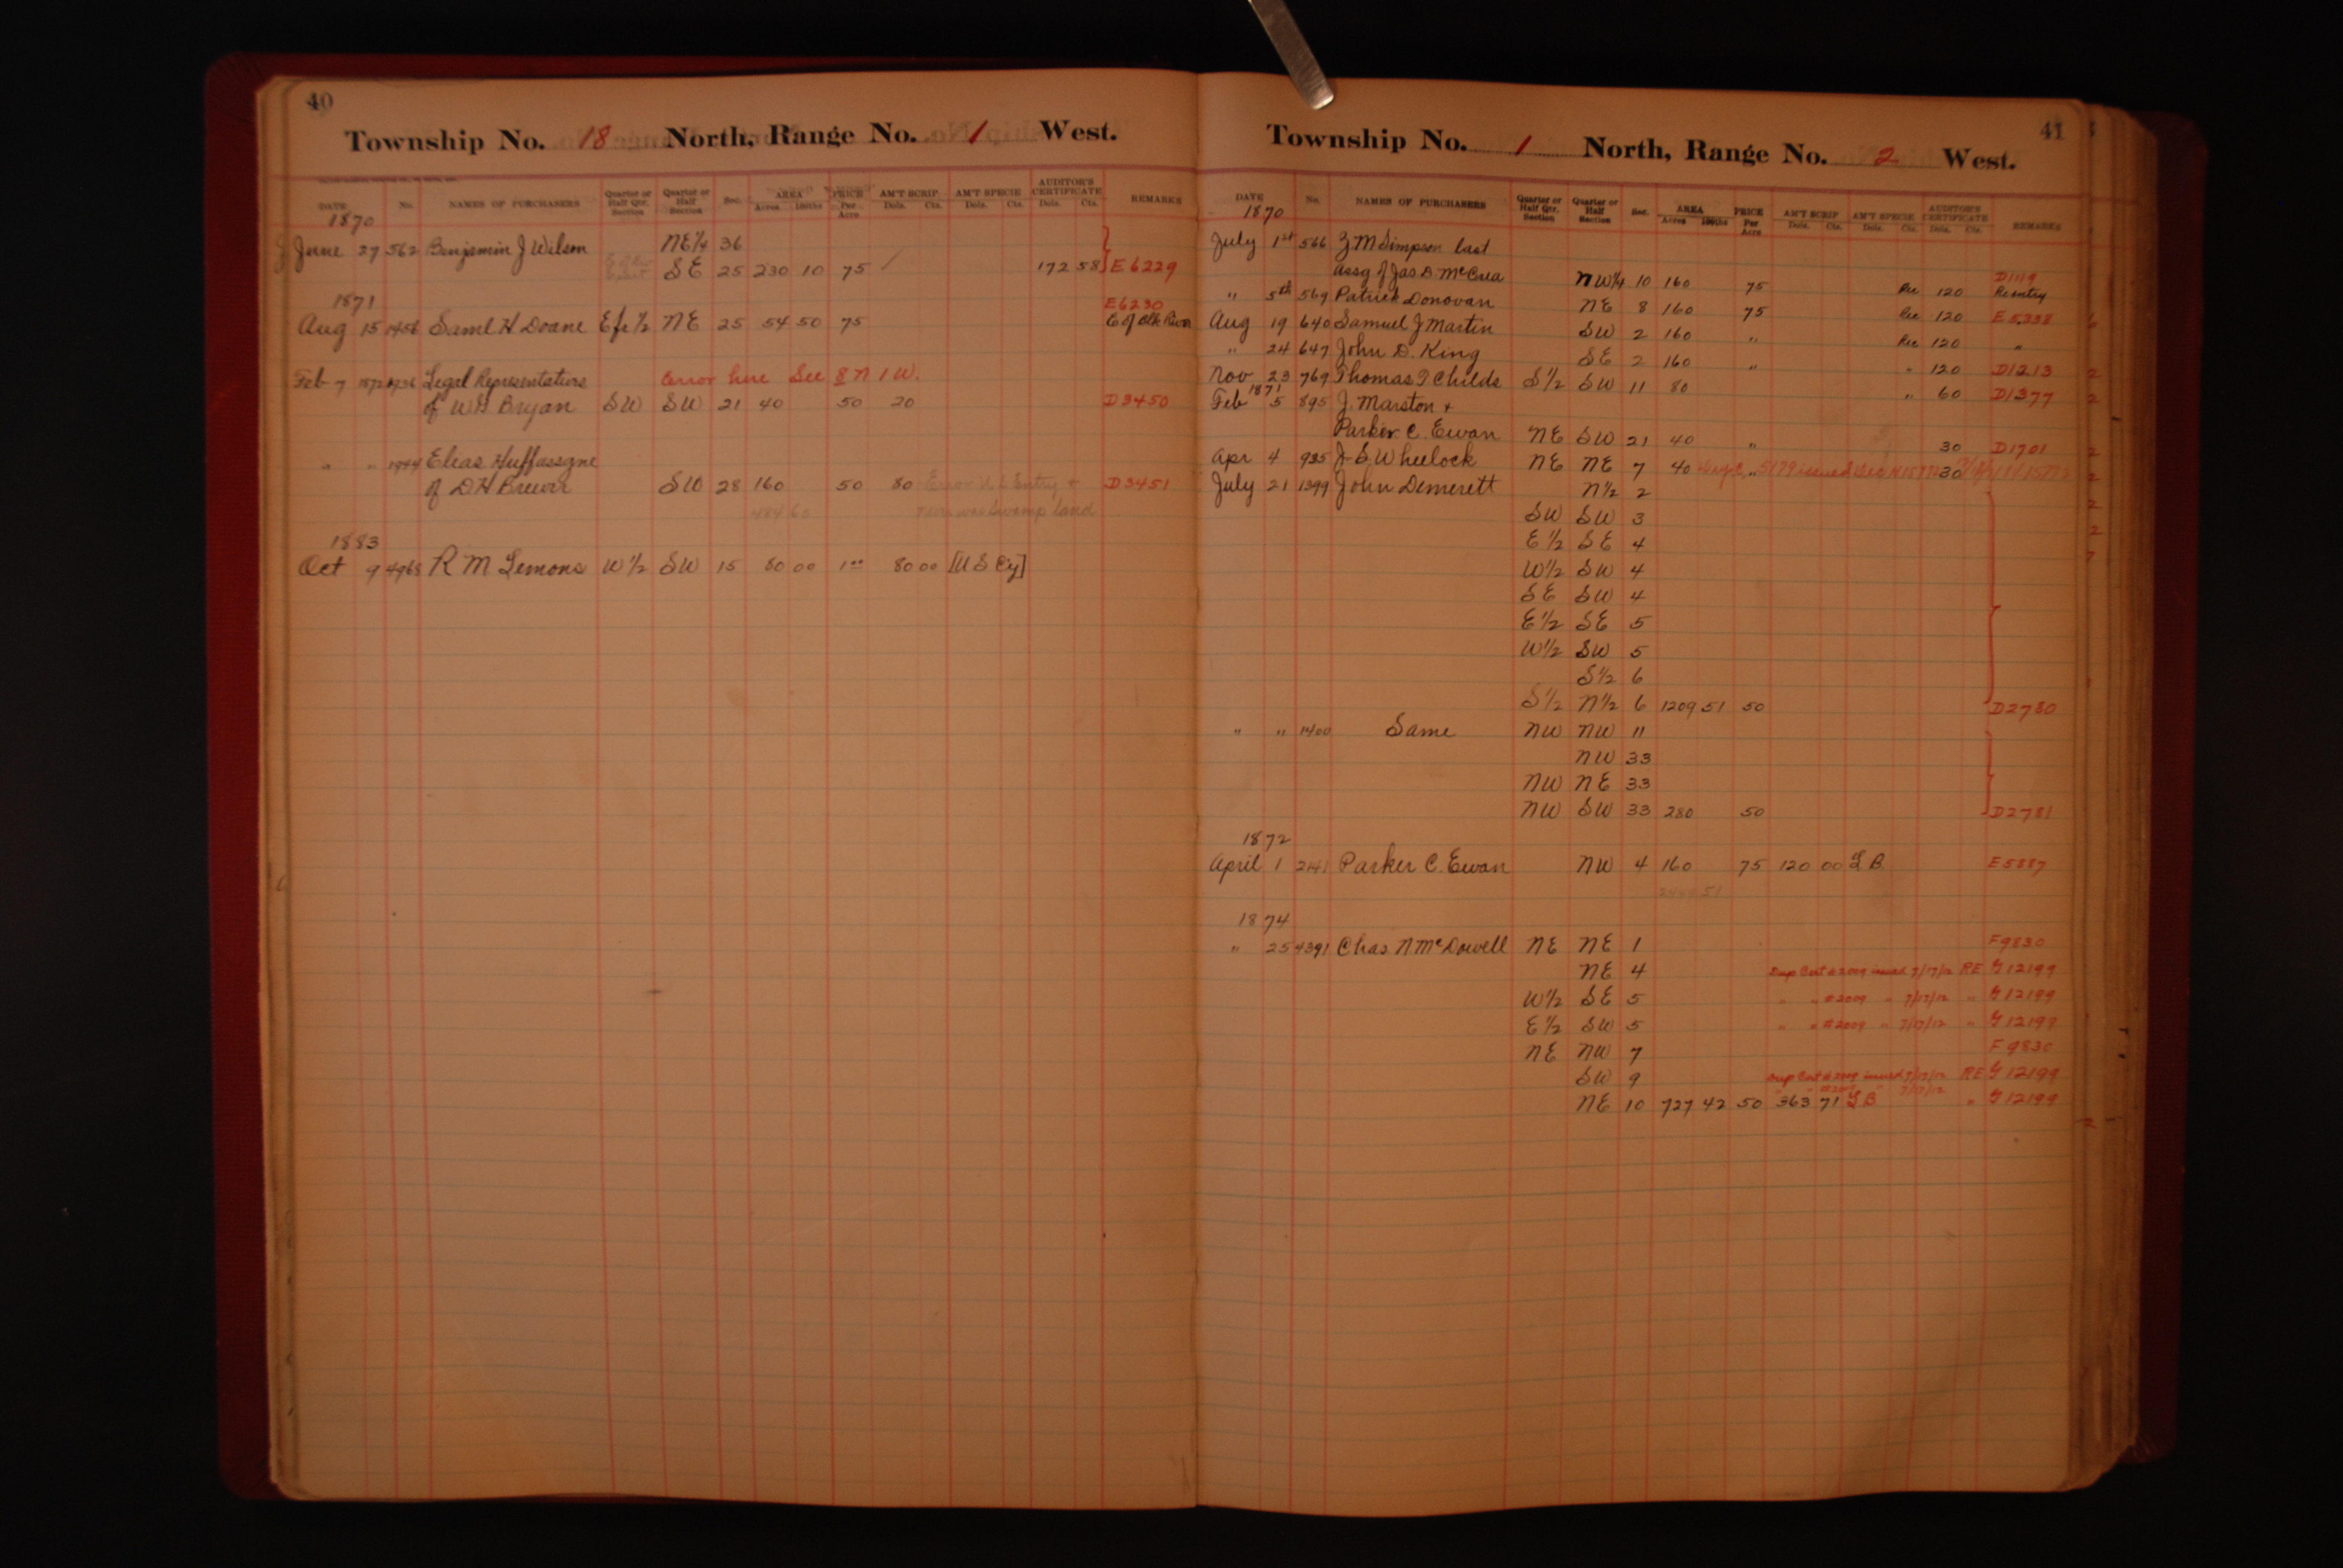 40
Township No. 18 North, Range No. 1 West.
DATE No. NAMES OF PURCHASERS Quarter or Half Qtr. Section Quarter or Half Section Sec. AREA Acres 100ths PRICE Per Acre AM'T SCRIP Dols. Cts. AM'T SPECIE Dols. Cts. AUDITOR'S CERTIFICATE Dols. Cts. REMARKS
1870
June 27 562 Benjamin J Wilson NE¼ 36
SE 25 230 10 75 172 58 E6229
1871
E6230
Aug 15 1456 Saml H Doane Efr½ NE 25 54 50 75 E of Elk River
Feb 7 1872 1936 Legal Representatives Error here See 8 N 1 W.
of W G Bryan SW SW 21 40 50 20 D3450
" " 1944 Elias Huffassgne
of D H Brewer SW 28 160 50 80 Error U.S. Entry & D3451
484 60 never was Swamp Land
1883
Oct 9 4968 R M Lemons W½ SW 15 80 00 1 00 80 00 [U S Cy]
41
Township No. 1 North, Range No. 2 West.
DATE No. NAMES OF PURCHASERS Quarter or Half Qtr. Section Quarter or Half Section Sec. AREA Acres 100ths PRICE Per Acre AM'T SCRIP Dols. Cts. AM'T SPECIE Dols. Cts. AUDITOR'S CERTIFICATE Dols. Cts. REMARKS
1870
July 1st 566 Z. M Simpson last
Assg of Jas D. McCrea NW¼ 10 160 75 Rec 120 D1119 Reentry
" 5th 569 Patrick Donovan NE 8 160 75 Rec 120 E5338
Aug 19 640 Samuel J Martin SW 2 160 " Rec 120 "
" 24 647 John D. King SE 2 160 " " 120 D1213
Nov 23 769 Thomas J Childs S½ SW 11 80 " 60 D1377
1871
Feb 5 895 J. Marston &
Parker C. Ewan NE SW 21 40 " 30 D1701
Apr 4 935 J S Wheelock NE NE 7 40 " 30
July 21 1399 John Demerett N½ 2
SW SW 3
E½ SE 4
W½ SW 4
SE SW 4
E½ SE 5
W½ SW 5
S½ 6
S½ N½ 6 1209 51 50 D2780
" " 1400 Same NW NW 11
NW 33
NW NE 33
NW SW 33 280 50 D2781
1872
April 1 2141 Parker C. Ewan NW 4 160 75 120 00 L B E5887
1874
" 25 4391 Chas N McDowell NE NE 1 F9830
NE 4 Dup Cert #2009 issued 7/17/12 RE G12199
W½ SE 5 " " #2009 " 7/17/12 " G12199
E½ SW 5 " " #2009 " 7/17/12 " G12199
NE NW 7 F9830
SW 9 Dup Cert #2009 issued 7/17/12 RE G12199
NE 10 727 42 50 363 71 L B 7/17/12 " G12199